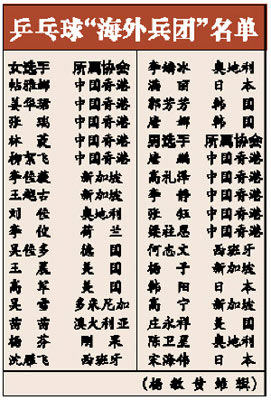 乒乓球“海外兵团”名单
女选手 所属协会
帖雅娜 中国香港
姜华珺 中国香港
张 瑞 中国香港
林 菱 中国香港
柳絮飞 中国香港
李佳薇 新加坡
王越古 新加坡
刘 佳 奥地利
李 佼 荷 兰
吴佳多 德 国
王 晨 美 国
高 军 美 国
吴 雪 多米尼加
苗 苗 澳大利亚
杨 芬 刚 果
沈燕飞 西班牙
李 冰 奥地利
丽 日 本
郭芳芳 韩 国
唐 娜 韩 国
男选手 所属协会
唐 鹏 中国香港
高礼泽 中国香港
李 静 中国香港
张 钰 中国香港
梁柱恩 中国香港
何志文 西班牙
杨 子 新加坡
韩 阳 日 本
高 宁 新加坡
庄永祥 美 国
陈卫星 奥地利
宋海伟 日 本
(杨敏 辑)